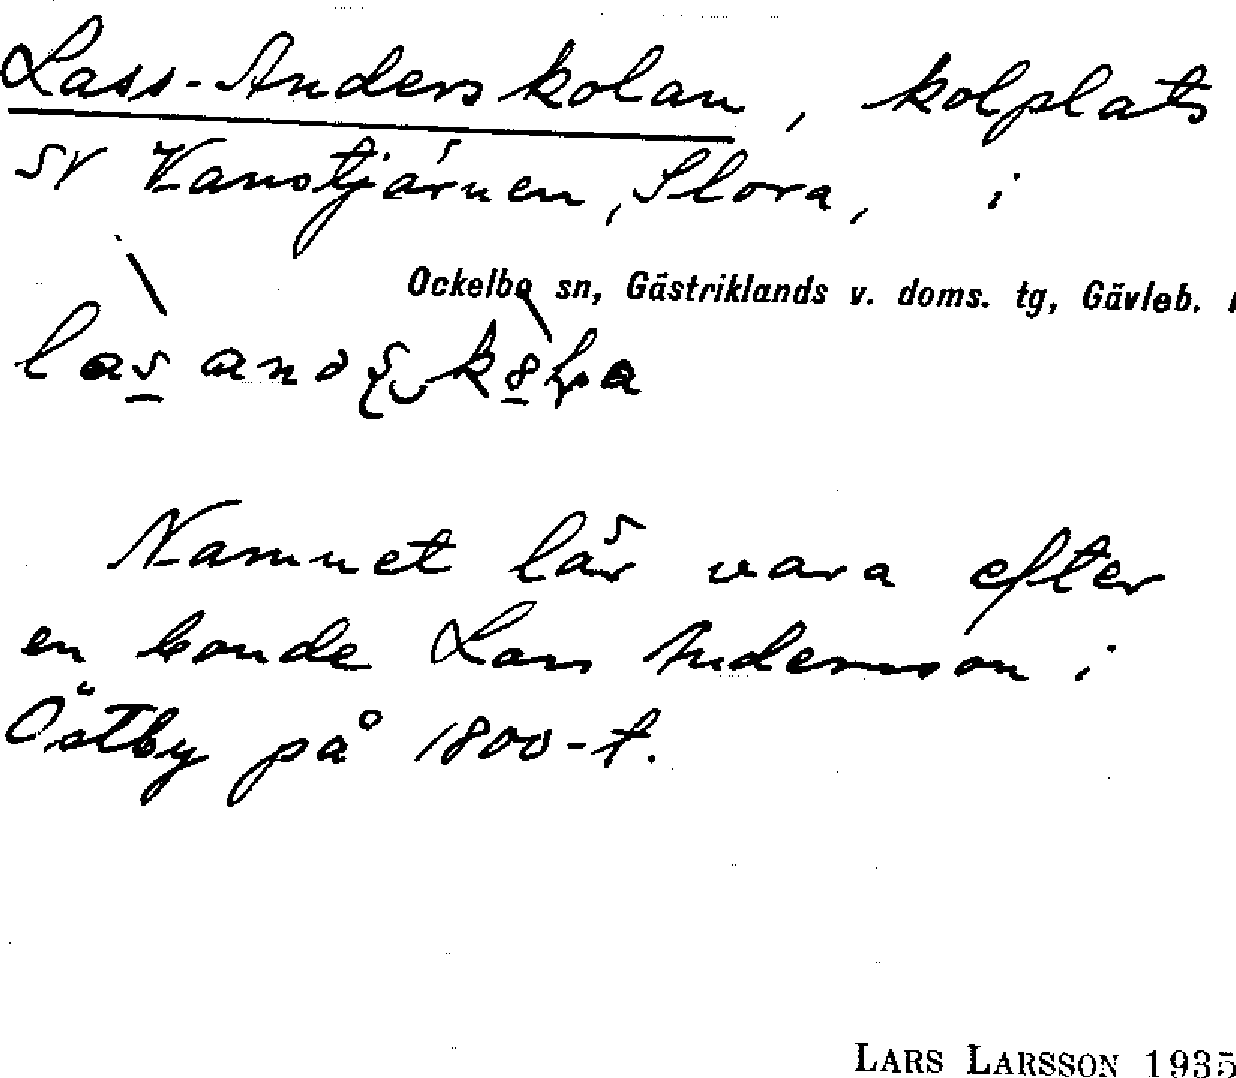 Lass-Anders kolan, kolplats
sv Kanstjärnen, Slora, i
Ockelbo sn, Gästriklands v. doms. tg, Gävleb.
Namnet lär vara efter
en bonde Lars Andersson i
Östby på 1800-t.
LARS LARSSON 1935